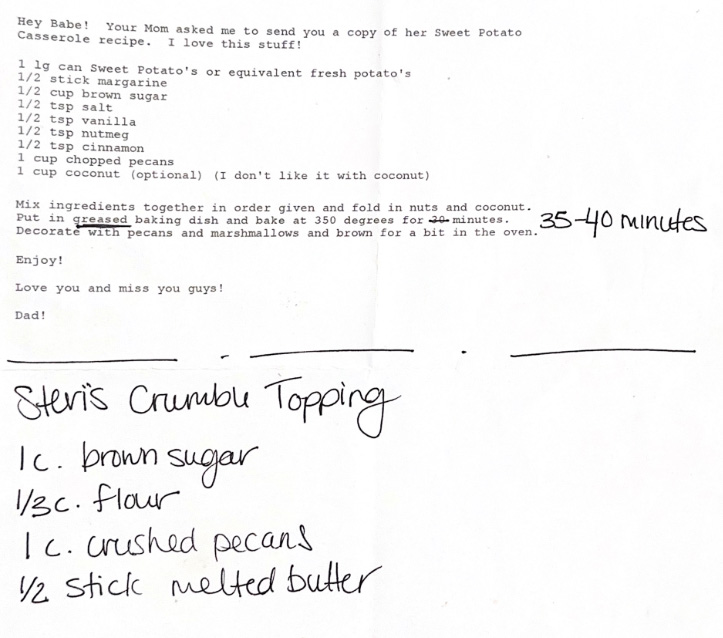 Hey Babe!  Your Mom asked me to send you a copy of her Sweet Potato
Casserole recipe.  I love this stuff!
1 lg can Sweet Potato's or equivalent fresh potato's
1/2 stick margarine
1/2 cup brown sugar
1/2 tsp salt
1/2 tsp vanilla
1/2 tsp nutmeg
1/2 tsp cinnamon
1 cup chopped pecans
1 cup coconut (optional)  (I don't like it with coconut)
Mix ingredients together in order given and fold in nuts and coconut.
Put in greased baking dish and bake at 350 degrees for 30 minutes. 35-40 minutes
Decorate with pecans and marshmallows and brown for a bit in the oven.
Enjoy!
Love you and miss you guys!
Dad!
Steri's Crumble Topping
1 c. brown sugar
1/3 c. flour
1 c. crushed pecans
1/2 stick melted butter